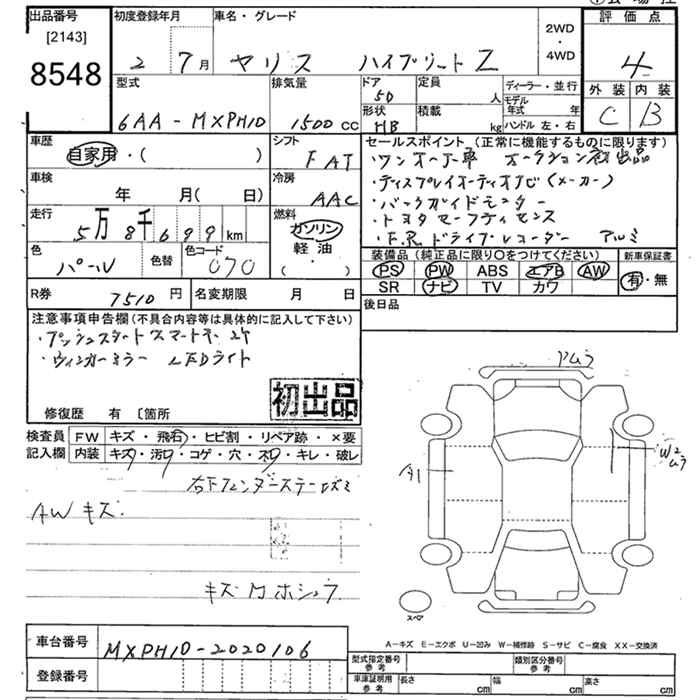 出品番号 初度登録年月 車名・グレード 評価点
[2143] 2 7月 ヤリス ハイブリッド Z 2WD・4WD 4
8548
型式 排気量 ドア 定員 ディーラー・並行 外装 内装
6AA-MXPH10 1500cc 5D 人 モデル年式 年 C B
形状 積載 ハンドル 左・右
HB kg
車歴 シフト セールスポイント (正常に機能するものに限ります)
自家用・( ) FAT ・ワンオーナー車 オークション初出品
車検 冷房 ・ディスプレイオーディオナビ(メーカー)
年 月( 日) AAC ・バックガイドモニター
走行 燃料 ・トヨタセーフティセンス
5万8千699km ガソリン ・F.R.ドライブレコーダー アルミ
色 色替 色コード 軽油
パール 070 ( ・ )
装備品 (純正品に限り○をつけてください) 新車保証書
PS PW ABS エアB AW 有・無
SR ナビ TV カワ
R券 7510円 名変期限 月 日 後日品
注意事項申告欄(不具合内容等は具体的に記入して下さい)
・プッシュスタート スマートキー2ケ
・ウィンカーミラー LEDライト
初出品
修復歴 有 〔箇所
検査員 FW キズ・飛石・ヒビ割・リペア跡・×要
記入欄 内装 キズ・汚れ・コゲ・穴・ネジ・キレ・破レ
右Fフェンダーステー
AWキズ.
キズ ホシュウ
アムラ
A1
W2
ムラ
スペア
A-キズ E-エクボ U-凹み W-補修跡 S-サビ C-腐食 XX-交換済
車台番号 MXPH10-2020106
登録番号
型式指定番号 参考 類別区分番号 参考
車庫証明用 参考 長さ cm 幅 cm 高さ cm